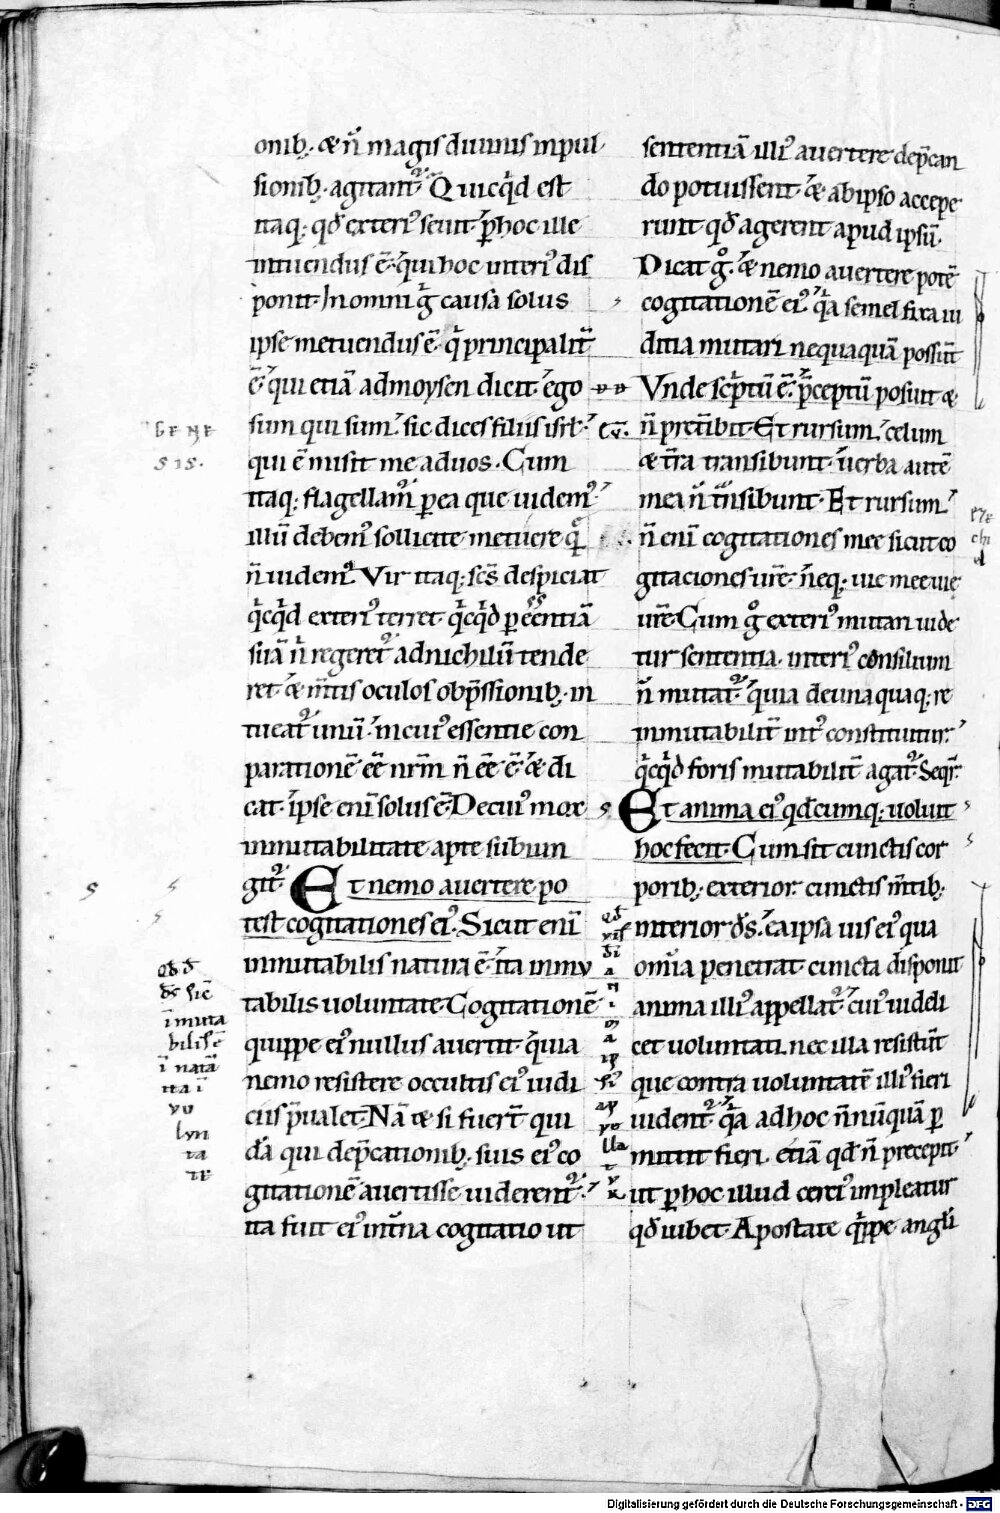 onib; & n̄ magis diuinis inpul
sionib; agitant᷑. Quicq̇d est
itaq; qđ exteri᷒ seuit p̄ hoc ille
intuendus ē. q̇ui hoc interi᷒ dis
ponit. In omni ḡ causa solus
ipse metuendus ē. q̇ principalit̄
ē. qui etiā ad moysen dicit. ego
sum qui sum. sic dices filiis isrł.
qui ē misit me ad uos. Cum
itaq; flagellam᷒ p ea que uidem᷒.
illū debem᷒ sollicite metuere quē
n̄ uidem᷒. Vir itaq; scs̄ despiciat
q̇cq̇d exteri᷒ terret. q̇cq̇d p eēntiā
suā n̄ regeret᷑ ad nichilū tende
ret. & m̄tis oculos obp̄ssionib; in
tueat᷑ unū. in cui᷒ essentie con
parationē eē nrm̄ n̄ eē ē. & di
cat. ipse enī solus ē. De cui᷒ mox
inmutabilitate apte subiun
git᷑. Et nemo auertere po
test cogitationes ei᷒. Sicut enī
inmutabilis natura ē. ita inmu
tabilis uoluntate. Cogitationē
quippe ei᷒ nullus auertit. quia
nemo resistere occultis ei᷒ iudi
ciis p̄ualet. Nā & si fuer̄t qui
dā qui dep̄cationib; suis ei᷒ co
gitationē auertisse uiderent᷑.
ita fuit ei᷒ int̄na cogitatio ut
sententiā illi᷒ auertere dep̄can
do potuissent. & ab ipso accepe
runt qđ agerent apud ipsū.
Dicat ḡ. & nemo auertere potē
cogitationē ei᷒. q̇a semel fixa iu
ditia mutari nequaquā possūt
Vnde scptū ē. p̄ceptū posuit &
n̄ pret̄ibit. Et rursum. celum
& t̄ra transibunt. uerba autē
mea n̄ t̄nsibunt. Et rursum.
n̄ enī cogitationes mee sicut co
gitaciones ur̄e. neq; uie mee uie
ur̄e. Cum ḡ exteri᷒ mutari uide
tur sententia. interi᷒ consilium
n̄ mutat᷑. quia de una quaq; re
inmutabilit̄ int᷒ constituitur.
q̇cq̇d foris mutabilit̄ agat᷑. Seq̄r.
Et anima ei᷒ qđcumq; uoluit
hoc fecit. Cum sit cunctis cor
porib; exterior. cunctis m̄tib;
interior ds̄. ea ipsa uis ei᷒ qua
omia penetrat. cuncta disponit
anima illi᷒ appellat᷑. cui᷒ uidel
cet uoluntati. nec illa resistūt
que contra uoluntatē illi᷒ fieri
uident᷑. q̇a ad hoc n̄nūquā p
mittit fieri. etiā qđ n̄ precepit.
ut p̄ hoc illud certi᷒ impleatur
qđ iubet. Apostate q̇ppe angłi
GENE
SIS.
Qđ đ
īmuta
bilis ē
ī natā
ita ī
vo
lvn
ta
te
Digitalisierung gefördert durch die Deutsche Forschungsgemeinschaft - DFG